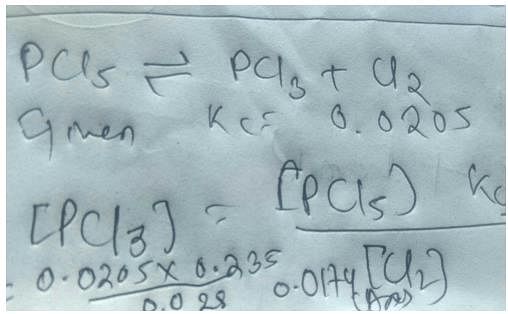 PCl5 ⇌ PCl3 + Cl2
Given Kc= 0.0205
[PCl3] = [PCl5) Kc
[Cl2]
= 0.0205 x 0.235
0.028
0.0174 (Ans